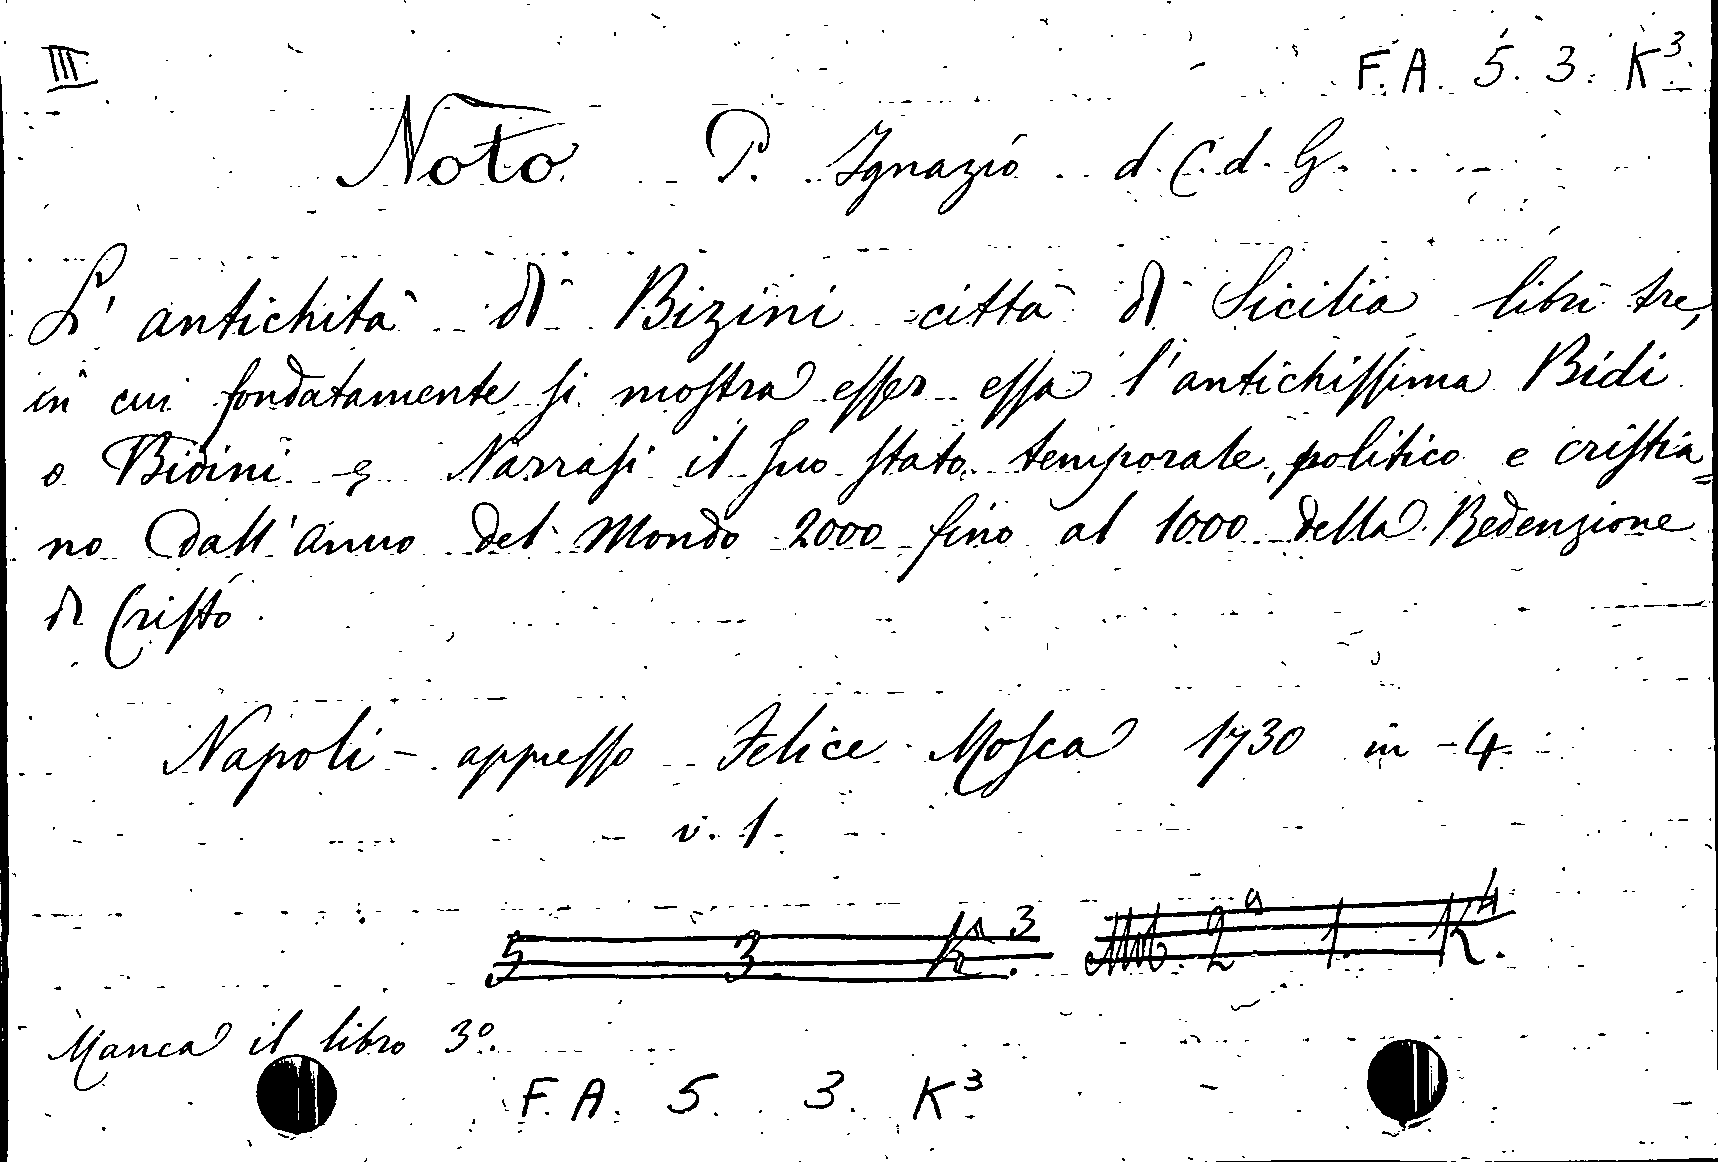 III
F. A. 5. 3. K³.
Noto P. Ignazio d. C. d. G.
L'antichità di Bizini città di Sicilia libri tre,
in cui fondatamente si mostra esser essa l'antichissima Bidi
o Bidini e Narrasi il suo stato temporale, politico e cristia=
no dall'anno del Mondo 2000 fino al 1000 della Redenzione
di Cristo.
Napoli - appresso Felice Mosca 1730 in-4.
v. 1.
5 3. K³. 2ª 1. K⁴.
Manca il libro 3º.
F. A. 5. 3. K³